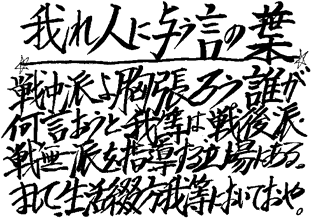 我れ人に与う言の葉
戦中派よ胸張ろう誰が
何言おうと我等は戦後派
戦無派を指導する立場にある。
まして、生活綴方我等においておや。